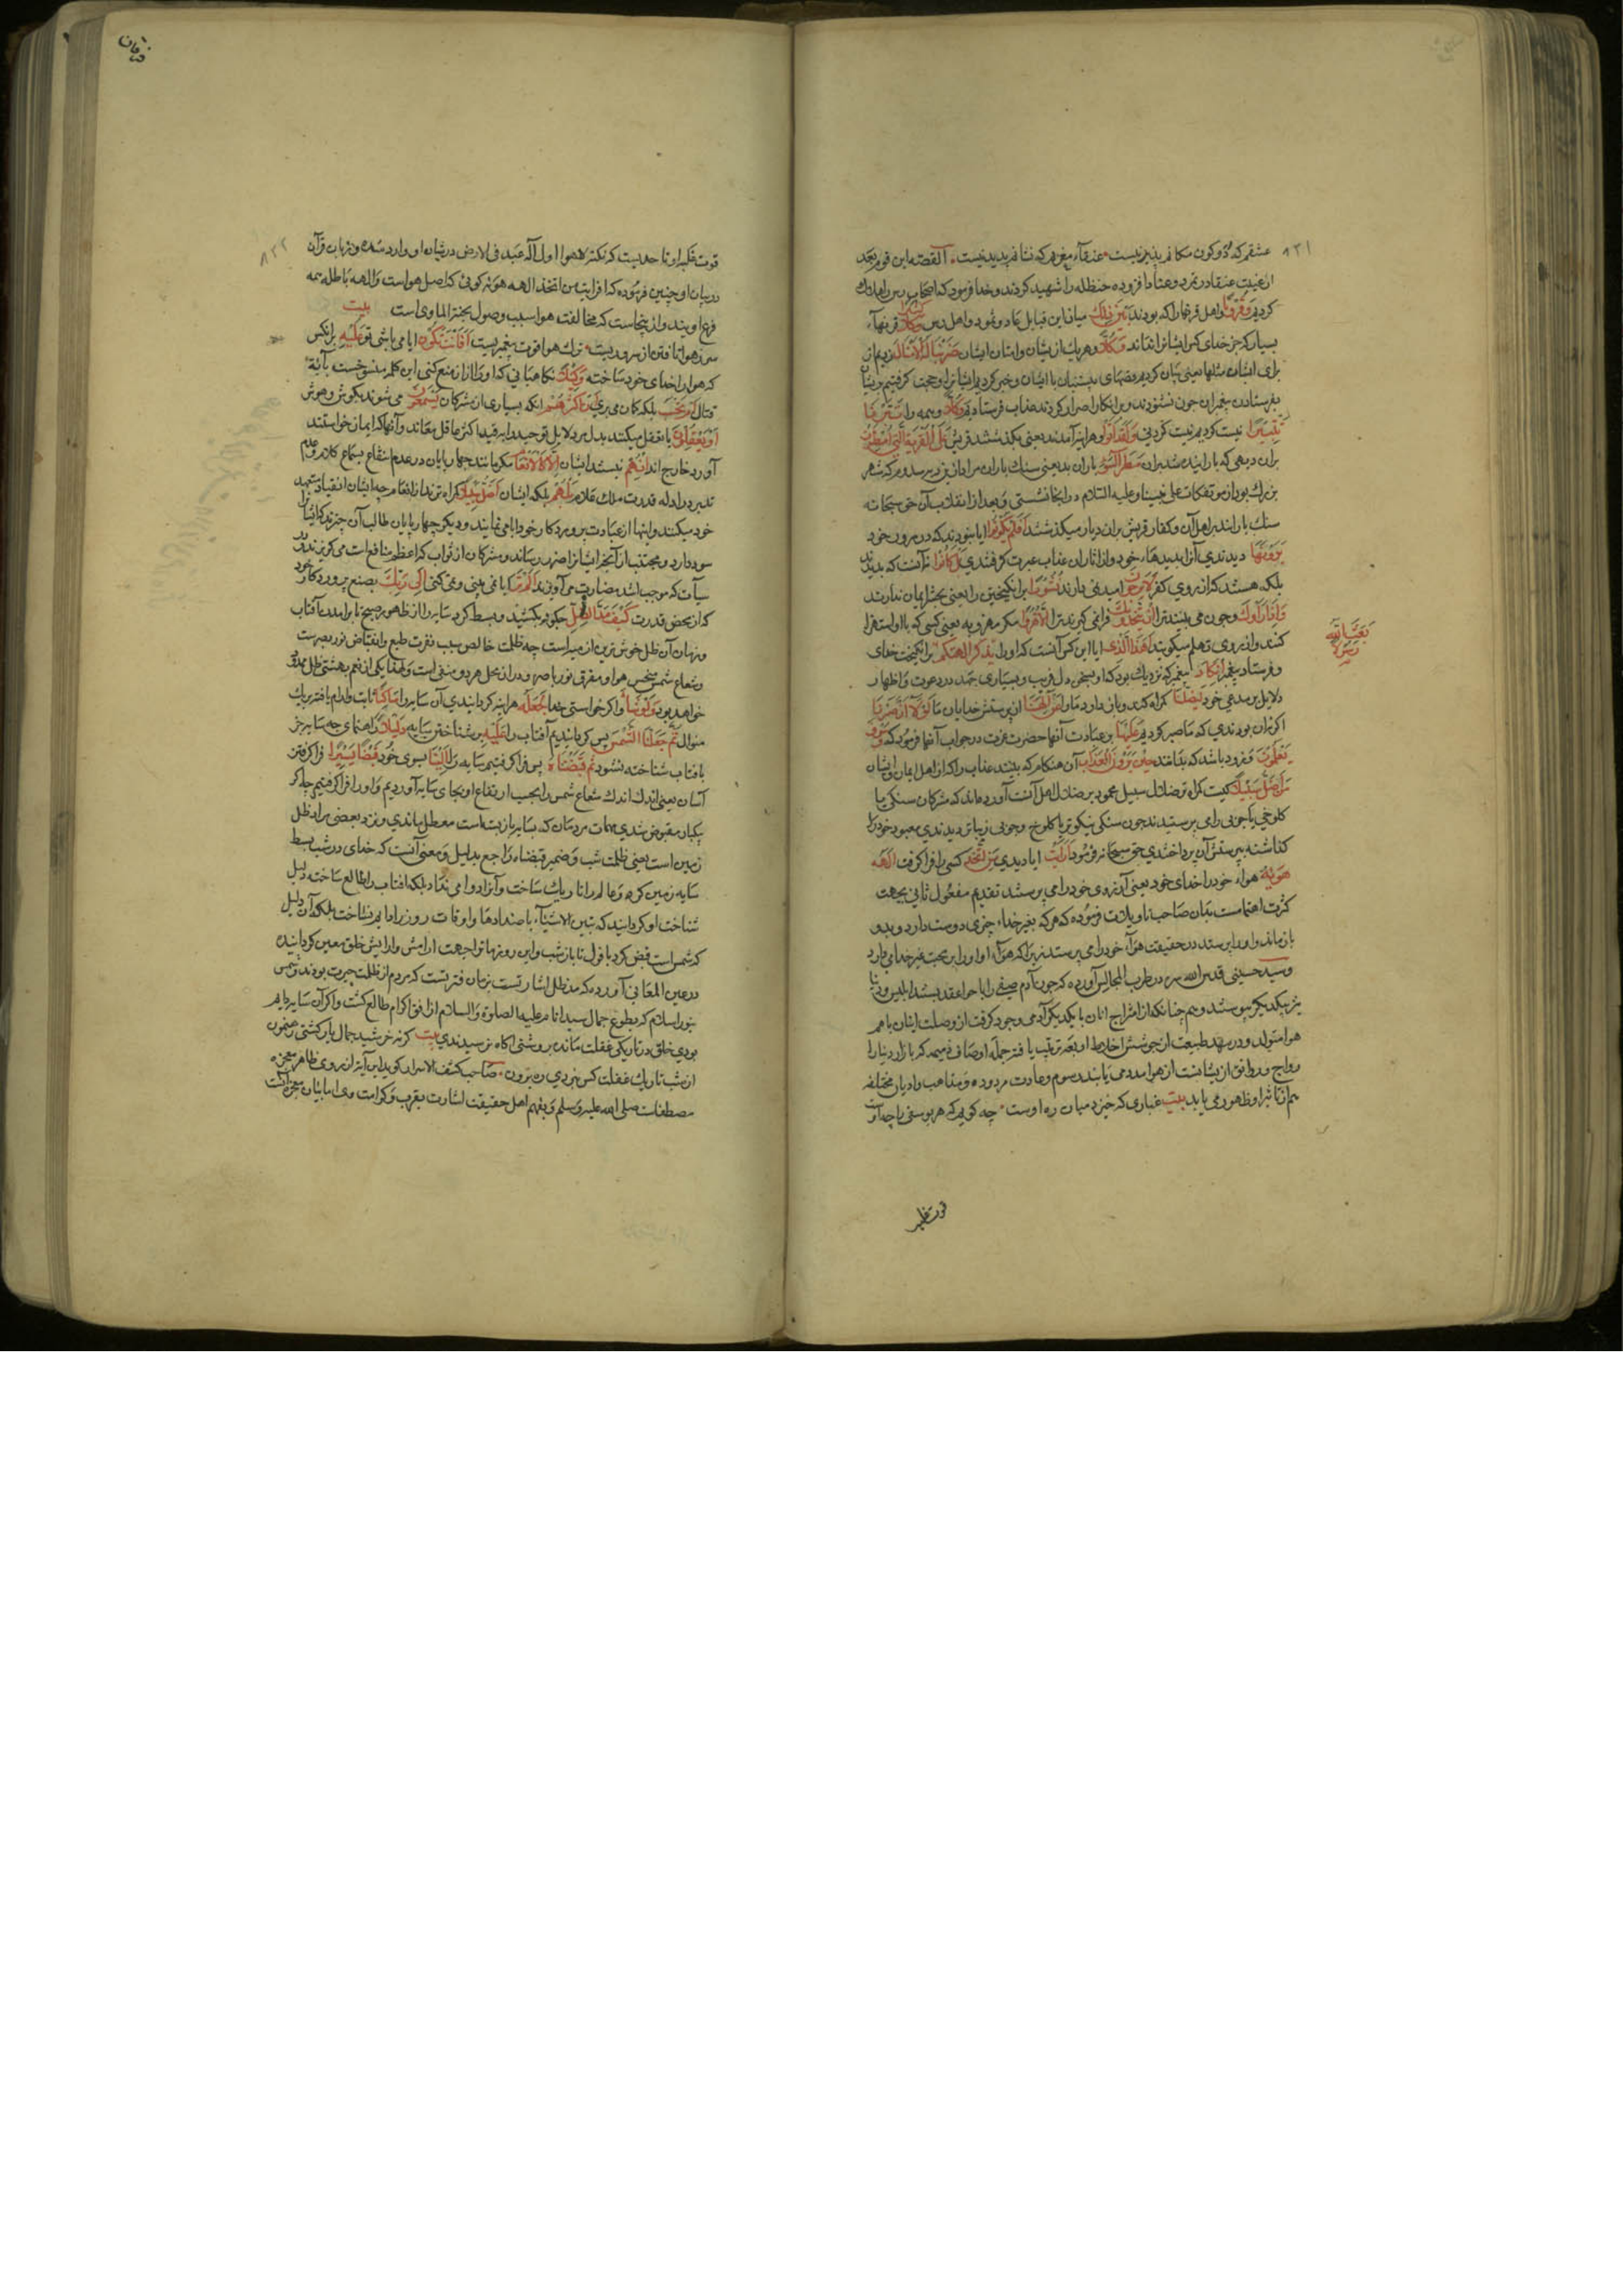 ۸۲۱
عشقم که دو کون مکانم پدید نیست عنقاء مغربم که نشانم پدید نیست القصه این قوم بعد
از غیبت عنقا در تمرد و عناد افزوده حنظله را شهید کردند و خدا فرمود که اصحاب رس را هلاک
کردیم وَقُرُونًا و اهل قرنها را که بودند بَيْنَ ذَلِكَ میان این قبایل عاد و ثمود و اهل رس كَثِيرًا قرنهاء
بسیار که جز خدای کس ایشانرا نداند وَكُلًّا و هر یک از ایشان ضَرَبْنَا لَهُ الْأَمْثَالَ زدیم از
برای ایشان مثلها یعنی بیان کردیم قصهای پیشینیان با ایشان
بفرستادن پیغمبران چون نشنودند و بر انکار اصرار کردند عذاب فرستادیم وَكُلًّا و همه را تَبَّرْنَا
تَتْبِيرًا نیست کردیم نیست کردنی وَلَقَدْ أَتَوْا و هر اینه آمدند یعنی بگذشتند قریش عَلَى الْقَرْيَةِ الَّتِي أُمْطِرَتْ
بران دیهی که بارانیده شد بران مَطَرَ السَّوْءِ باران بد یعنی سنگ باران مراد
بزرگ بود از موتفکات علی نبینا و علیه السلام در انجا نشستی و بعد از انقلاب آن حق سبحانه
سنگ بارانید بر اهل آن و کفار قریش بران دیار میگذشتند أَفَلَمْ يَكُونُوا ایا نبودند که در مرور خود
يَرَوْنَهَا دیدندی آنرا بدیدهاء خود و از اثار ان عذاب عبرت گرفتندی بَلْ كَانُوا نه آنست که ندیدند
بلکه هستند که از روی کفر لَا يَرْجُونَ امید نمی دارند نُشُورًا برانگیختن را یعنی بحشر ایمان ندارند
وَإِذَا رَأَوْكَ و چون می بینند ترا إِنْ يَتَّخِذُونَكَ فرا نمی گیرند ترا إِلَّا هُزُوًا مگر مهزو به یعنی کسی که با او استهزا
کنند و از روی تهکم میگویند أَهَذَا الَّذِي ایا این کس آنست که او را
بَعَثَ اللَّهُ رَسُولًا
برانگیخت خدای
و فرستاد پیغمبر إِنْ كَادَ
دلایل بر مدعی خود لَيُضِلُّنَا گمراه کند و باز دارد ما را عَنْ آلِهَتِنَا از پرستش خدایان ما لَوْلَا أَنْ صَبَرْنَا
اگر نه آن بودندی که ما صبر کردیم عَلَيْهَا بر عبادت آنها حضرت عزت در جواب آنها فرمود که وَسَوْفَ
يَعْلَمُونَ و زود باشد که بدانند حِينَ يَرَوْنَ الْعَذَابَ آن هنگام که بینند عذاب را که از اهل ایمان و ایشان
مَنْ أَضَلُّ سَبِيلًا کیست گمراه تر
کلوخی یا چوبی را می پرستیدند چون سنگی نیکوتر یا کلوخ و چوبی زیباتر دیدندی معبود خود را
گذاشته بپرستش آن پرداختندی حق سبحانه فرمود أَرَأَيْتَ ایا دیدی مَنِ اتَّخَذَ کسی را فرا گرفت إِلَهَهُ
هَوَاهُ هواء خود را خدای خود یعنی آرزوی خود را می پرستد تقدیم مفعول ثانی بجهت
باز ماند و او را پرستد در حقیقت هواء خود را می پرستد زیرا که هواء او او را بر محبت غیر خدا می دارد
و سید حسینی قدس الله سره در طرب المجالس آورده که چون آدم صفی را با حوا عقد بستند ابلیس و دنیا
نیز بیکدیگر پیوستند و هم چنانکه از امتزاج انان با یکدیگر آدمی وجود گرفت از وصلت اینان با هم
هوا متولد
رواج و رونق
هم از تاثیر او ظهور می یابد بیت غباری که خیزد میان ره اوست چه گویم که هر یوسفی را چه اوست
قوت غلبه
فرقان
۸۲۲
قوت غلبه او تا حدیست که نکته لا هوا اول اله عبد فی الارض در شان او وارد شده و بزبان قرآن
در بیان او چنین فرموده که افرایت من اتخذ الهه هویه گوئی که اصل هواست و الهه باطله همه
فرع اویند و از ینجاست که مخالفت هوا سبب وصول بجنة الماوی است بیت
سر ز هوا تافتن از سروریست ترک هوا قوت پیغمبریست أَفَأَنْتَ تَكُونُ ایا می باشی تو عَلَيْهِ بر انکس
که هوا را خدای خود ساخته وَكِيلًا نگاهبانی که او را از ان منع کنی این کلمه منسوخست بآیة
قتال أَمْ تَحْسَبُ بلکه گمان می بری أَنَّ أَكْثَرَهُمْ انکه بسیاری از مشرکان يَسْمَعُونَ می شنوند بگوش و هوش
أَوْ يَعْقِلُونَ یا تعقل میکنند بدل
آورد خارج اند إِنْ هُمْ نیستند ایشان إِلَّا كَالْأَنْعَامِ مگر مانند چهارپایان در عدم انتفاع بسماع کلام و عدم
تدبر در ادله قدرت ملک علام بَلْ هُمْ بلکه ایشان أَضَلُّ سَبِيلًا گمراه ترند از انعام چه ایشان انقیاد متعهد
خود میکنند و اینها از عبادت پروردگار خود ابا می نمایند و دیگر چهارپایان طالب آن چیزند که ایشانرا
سود دارد و مجتنب از آنچه ایشانرا ضرر رساند و مشرکان از ثواب که اعظم منافع است می گریزند و در
سیات که موجب اشد مضارست می آویزند أَلَمْ تَرَ ایا نمی بینی و نمی نگری إِلَى رَبِّكَ بصنع پروردگار خود
که از محض قدرت كَيْفَ مَدَّ الظِّلَّ چگونه بکشید و بسط کرد سایه را از ظهور صبح تا برامدن آفتاب
و زمان آن ظل خوش ترین ازمنه است چه ظلمت خالص سبب نفرت طبع و انقباض نور بصرست
و شعاع شمس مسخن هوا و مفرق نور باصره و در ان محل هر دو منفی است و لهذا یکی از نعم بهشتی ظل ممدود
خواهد بود وَلَوْ شَاءَ و اگر خواستی خدا لَجَعَلَهُ هر اینه گردانیدی آن سایه را سَاكِنًا ثابت و ارام یافته بر یک
منوال ثُمَّ جَعَلْنَا الشَّمْسَ پس گردانیدیم آفتاب را عَلَيْهِ بر شناختن سایه دَلِيلًا راهنمای چه سایه جز
بافتاب شناخته نشود ثُمَّ قَبَضْنَاهُ پس فرا گرفتیم سایه را إِلَيْنَا بسوی خود قَبْضًا يَسِيرًا فرا گرفتن
آسان یعنی اندک اندک شعاع شمس را بحسب ارتفاع او بجای سایه آوردیم و او را فرا گرفتیم چه اگر
یکبار مقبوض شدی مهمات مردمان که بسایه باز بسته است معطل ماندی و نزد بعضی مراد ظل
زمین است یعنی ظلمت شب و ضمیر قبضناه راجع بدلیل و معنی آنست که خدای در شب بسط
سایه زمین کرد و عالم را تاریک ساخت و آنرا دوامی نداد بلکه افتاب را طالع ساخته دلیل
شناخت او گردانید که تتبین الاشیاء باضدادها و اوقات روز را دایم نساخت بلکه آن دلیل
که شمس است قبض کرد بافول تا باز شب و این روزها تواجهت ارامش و ارایش خلق معین گردانیده
در عین المعانی آورده که مد ظل اشارتست بزمان فترتست که مردم از ظلمت حیرت بودند و شمس
بنور اسلام که بطلوع جمال سید انام علیه الصلوة و السلام از افق اکرام طالع گشت و اگر آن سایه دایم
بودی خلق در تاریکی غفلت مانده بروشنی اگاه نرسیدندی بیت گر نه خرشید جمال یار گشتی رهنمون
از شب تاریک غفلت کس نبردی ره برون صاحب کشف الاسرار گوید این آیة از روی ظاهر معجزه
مصطفاست صلی الله علیه و سلم و بفهم اهل حقیقت اشارت بقرب و کرامت وی اما بیان معجزه آنست